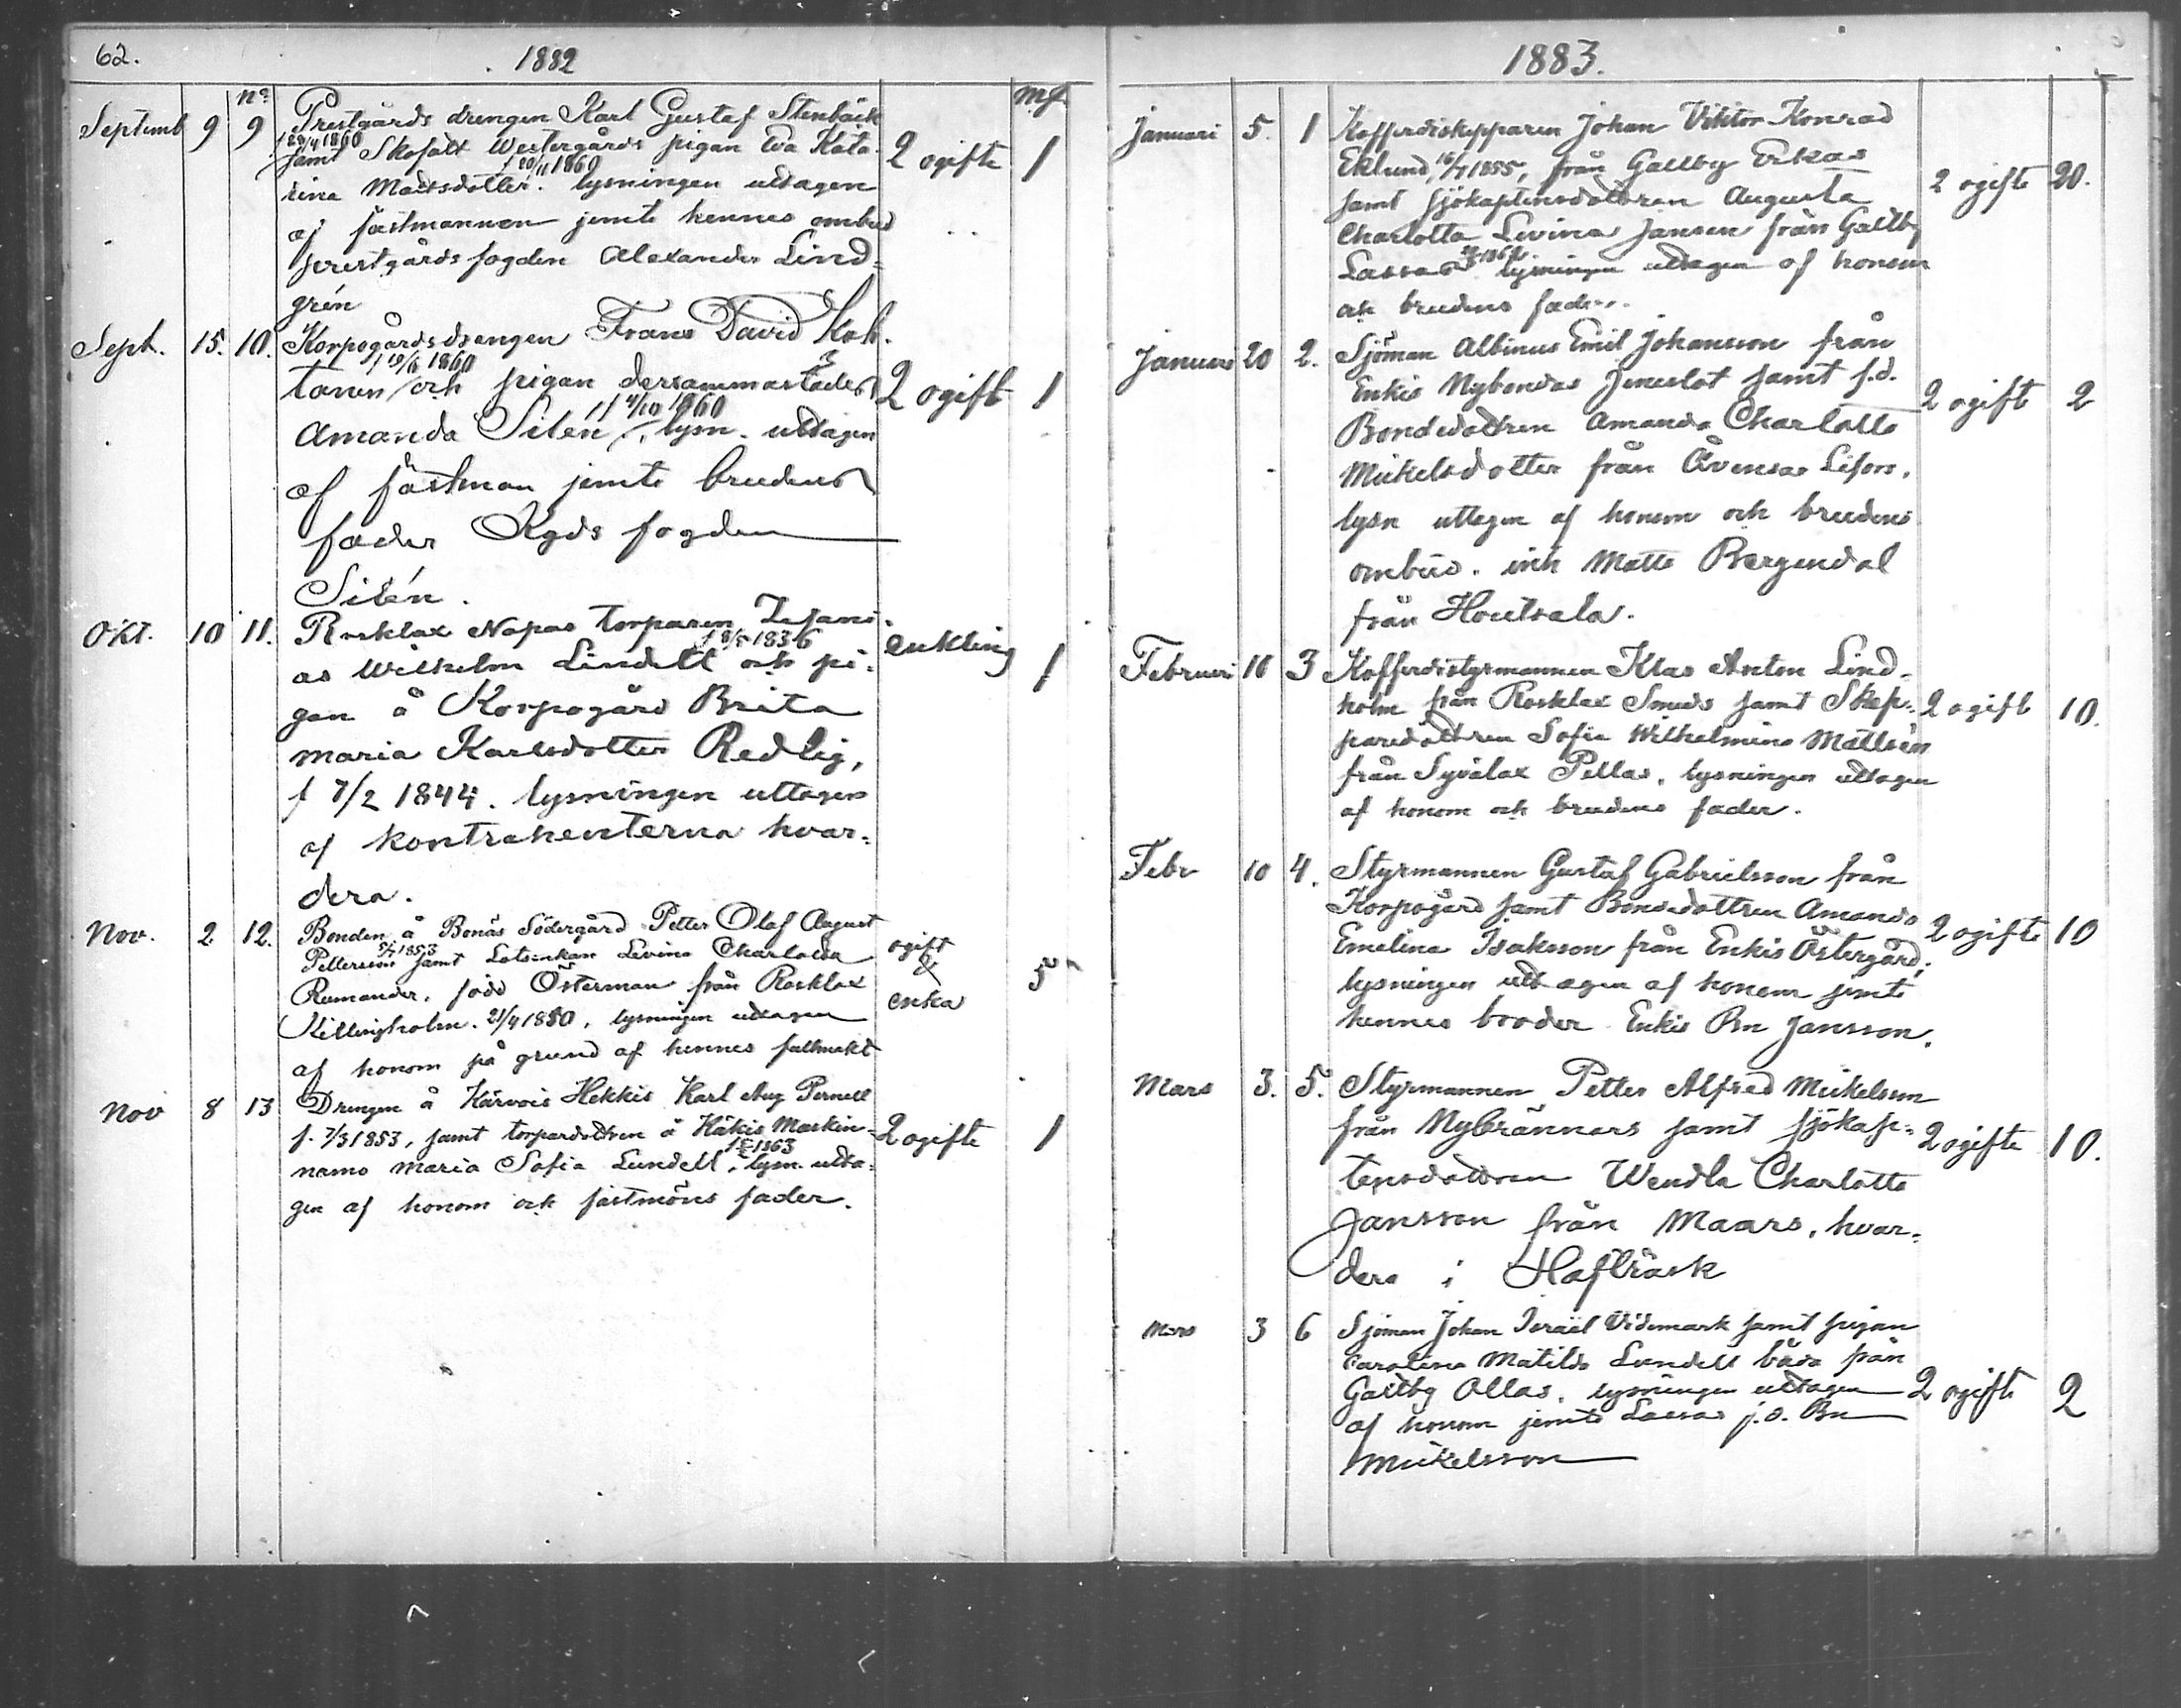 62.
1882
nº
mf.
Septemb 9 9 Prestgårds drengen Karl Gustaf Stenbäck
f 29/4 1860
samt Skofalt Westergårds pigan Eva Kata-
f 20/11 1860
2 ogifte 1
rina Matsdotter. lysningen uttagen
af fästmannen jemte hennes ombud
prestgårds fogden Alexander Lind=
grén
Sept. 15. 10. Korpogårdsdrengen Frans David Kok.
f 19/6 1860
tanen och pigan dersammastädes
2 ogift 1
f 4/10 1860
Amanda Silén, lysn. uttagen
af fästman jemte brudens
fader Kgds fogden
Silén.
Okt. 10 11. Rosklax Napas torparen Zefani-
f 8/5 1836
as Wilhelm Lindell och pi-
enkling 1
gan å Korpogård Brita
Maria Karlsdotter Redlig,
f 7/2 1844. lysningen uttagen
af kontrahenterna hvar-
dera.
Nov. 2 12. Bonden å Bonäs Södergård Petter Olof August
1853
Pettersson samt Lotsenkan Levina Charlotta
ogift
&
enka
5
Rumander, född Österman från Rosklax
Killingholm. 21/4 1850, lysningen uttagen
af honom på grund af hennes fullmakt
Nov 8 13 Drengen å Kärvois Hekkis Karl Aug Pernell
f. 7/3 1853, samt torpardottren å Häkis Maskin-
2 ogifte 1
1863
namo Maria Sofia Lundell, lysn. utta-
gen af honom och fästmöns fader.
1883.
Januari 5. 1 Kofferdiskepparen Johan Viktor Konrad
Eklund, 16/7 1855, från Galtby Erkas
2 ogifte 20.
samt sjökaptensdottren Augusta
Charlotta Levina Jansen från Galtby
Lassas lysningen uttagen af honom
och brudens fader.
Januari 20 2. Sjöman Albinus Emil Johansson från
Enkis Nybondas Jeneslot samt f.d.
2 ogift 2
Bondedottren Amanda Charlotta
Mickelsdotter från Åvensar Lifors.
lysn uttagen af honom och brudens
ombud. inh Matts Bergendal
från Houtsala.
Februari 10 3 Kofferdistyrmannen Klas Anton Lind-
holm från Rosklax Smeds samt Skep-
2 ogift 10.
paredottren Sofia Wilhelmina Mattsén
från Syvälax Pellas, lysningen uttagen
af honom och brudens fader.
Febr 10 4. Styrmannen Gustaf Gabrielsson från
Korpogård samt Bondedottren Amanda
2 ogifte 10
Emelina Isaksson från Enkis Östergård,
lysningen uttagen af honom jemte
hennes broder Enkis Bn Jansson.
Mars 3. 5. Styrmannen Petter Alfred Mickelsson
från Nybrännars samt sjökap-
2 ogifte 10.
tensdottren Wendla Charlotta
Jansson från Maars, hvar-
dera i Hafträsk
Mars 3 6 Sjöman Johan Israël Videmark samt pigan
Carolina Matilda Lundell båda från
Galtby Ollas, lysningen uttagen
2 ogifte 2
af honom jemte Lassas f.d. Bn
Mickelsson